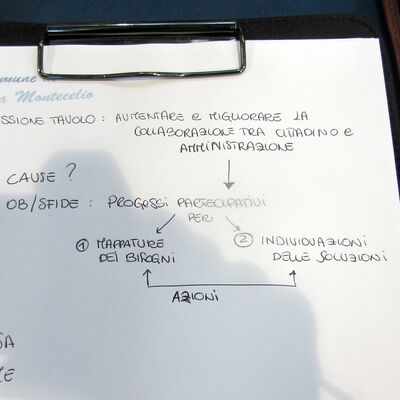 omune d
a Montecelio
SSIONE TAVOLO : AUMENTARE e MIGLIORARE LA
COLLABORAZIONE TRA CITTADINO e
AMMINISTRAZIONE
CAUSE ?
OB/SFIDE : PROGESSI PARTECIPATIVI
PER
① MAPPATURE
DEI BISOGNI
② INDIVIDUAZIONI
DELLE SOLUZIONI
AZIONI
SA
E